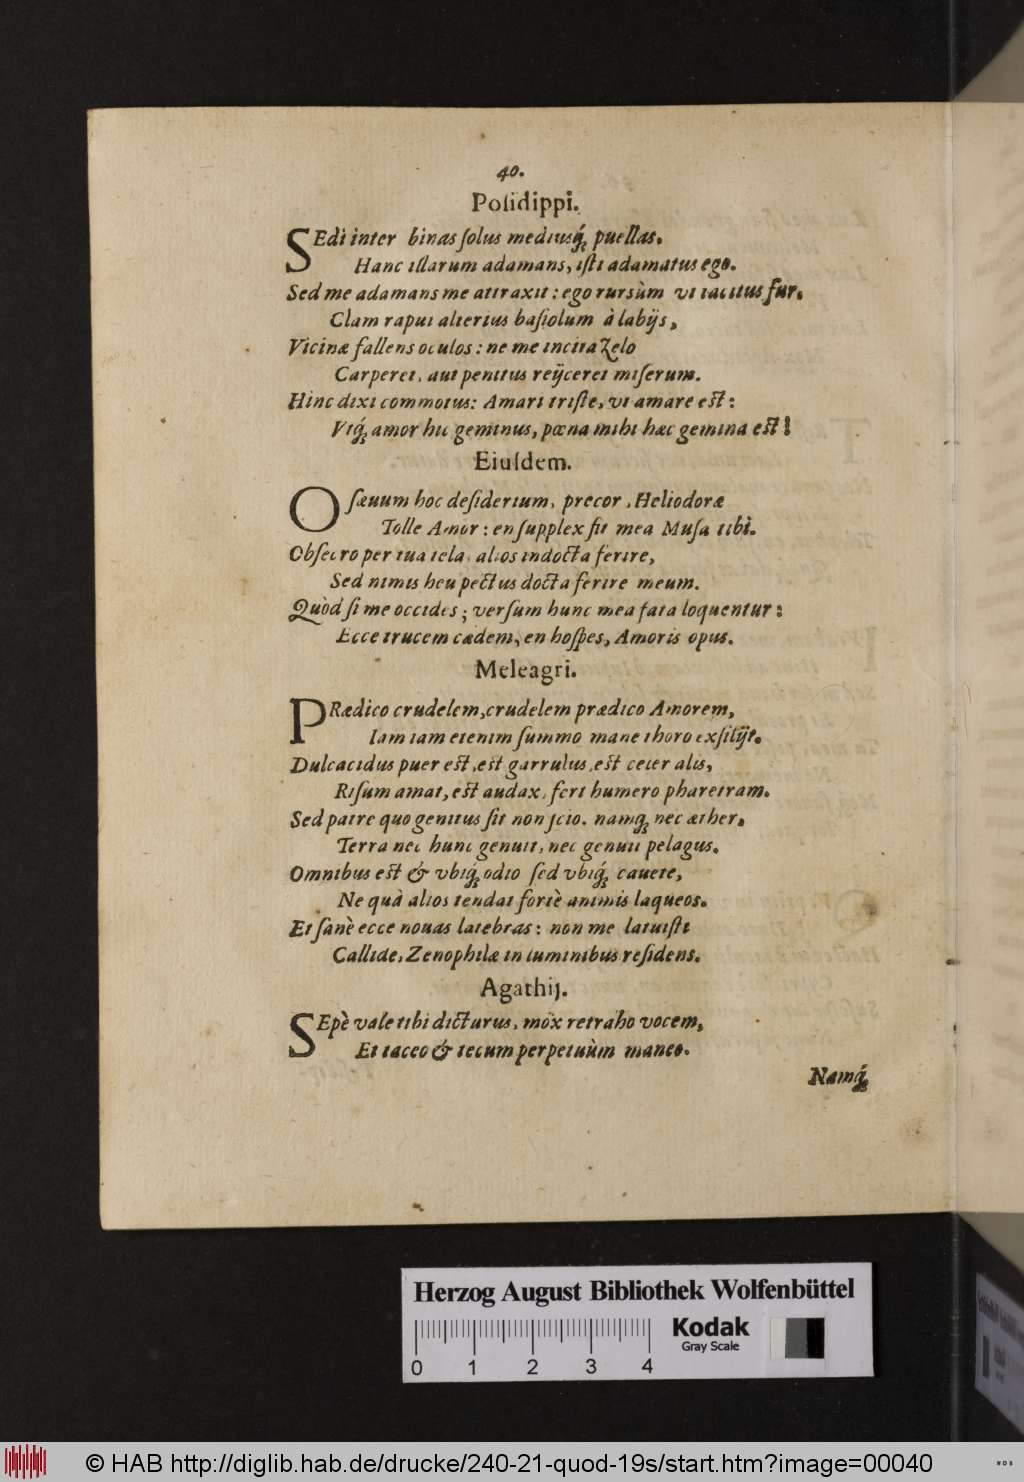 40.
Posidippi.
SEdi inter binas solus mediusq́; puellas.
Hanc illarum adamans, isti adamatus ego.
Sed me adamans me attraxit: ego rursùm vt tacitus fur.
Clam rapui alterius basiolum à labijs,
Vicinæ fallens oculos: ne me incita Zelo
Carperet, aut penitus reijceret miserum.
Hinc dixi commotus: Amari triste, vt amare est:
Vtq́; amor hic geminus, pœna mihi hæc gemina est!
Eiusdem.
O sæuum hoc desiderium, precor, Heliodoræ
Tolle Amor: en supplex sit mea Musa tibì.
Obsecro per tua tela, alios indocta ferire,
Sed nimis heu pectus docta ferire meum.
Quòd si me occides; versum hunc mea fata loquentur:
Ecce trucem cædem, en hospes, Amoris opus.
Meleagri.
PRædico crudelem, crudelem prædico Amorem,
Iam iam etenim summo mane thoro exsilijt.
Dulcacidus puer est, est garrulus, est celer alis,
Risum amat, est audax, fert humero pharetram.
Sed patre quo genitus sit non scio. namq́; nec æther,
Terra nec hunc genuit, nec genuit pelagus.
Omnibus est & vbiq́; odio sed vbiq́; cauete,
Ne quà alios tendat fortè animis laqueos.
Et sanè ecce nouas latebras: non me latuisti
Callide, Zenophilæ in luminibus residens.
Agathij.
SEpè vale tibi dicturus, mox retraho vocem,
Et taceo & tecum perpetuùm maneo.
Namq́;
Herzog August Bibliothek Wolfenbüttel
Kodak
Gray Scale
0 1 2 3 4
© HAB http://diglib.hab.de/drucke/240-21-quod-19s/start.htm?image=00040